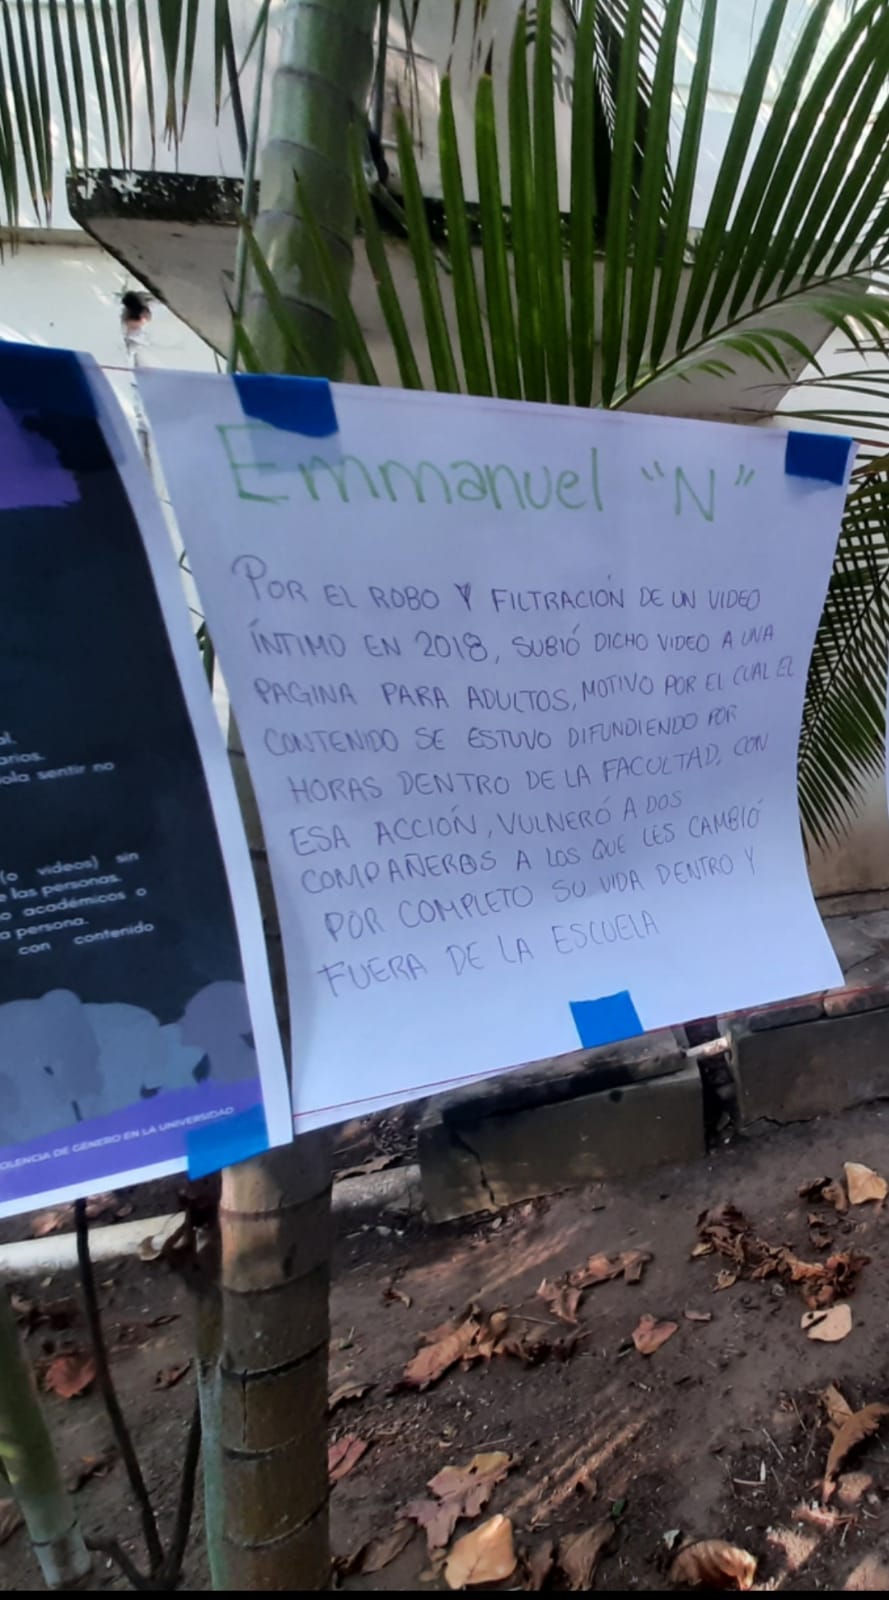 Emmanuel "N"
POR EL ROBO Y FILTRACIÓN DE UN VIDEO
ÍNTIMO EN 2018, SUBIÓ DICHO VIDEO A UNA
PAGINA PARA ADULTOS, MOTIVO POR EL CUAL EL
CONTENIDO SE ESTUVO DIFUNDIENDO POR
HORAS DENTRO DE LA FACULTAD, CON
ESA ACCIÓN, VULNERÓ A DOS
COMPAÑEROS A LOS QUE LES CAMBIÓ
POR COMPLETO SU VIDA DENTRO Y
FUERA DE LA ESCUELA
al.
arios.
ola sentir no
(o videos) sin
e las personas.
o académicos o
a persona.
con contenido
OLENCIA DE GÉNERO EN LA UNIVERSIDAD